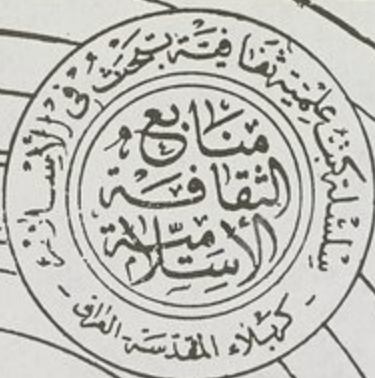 سلسلة كتب علمية ثقافية تبحث في الإسلام
منابع
الثقافة
الإسلامية
- كربلاء المقدسة العراق -